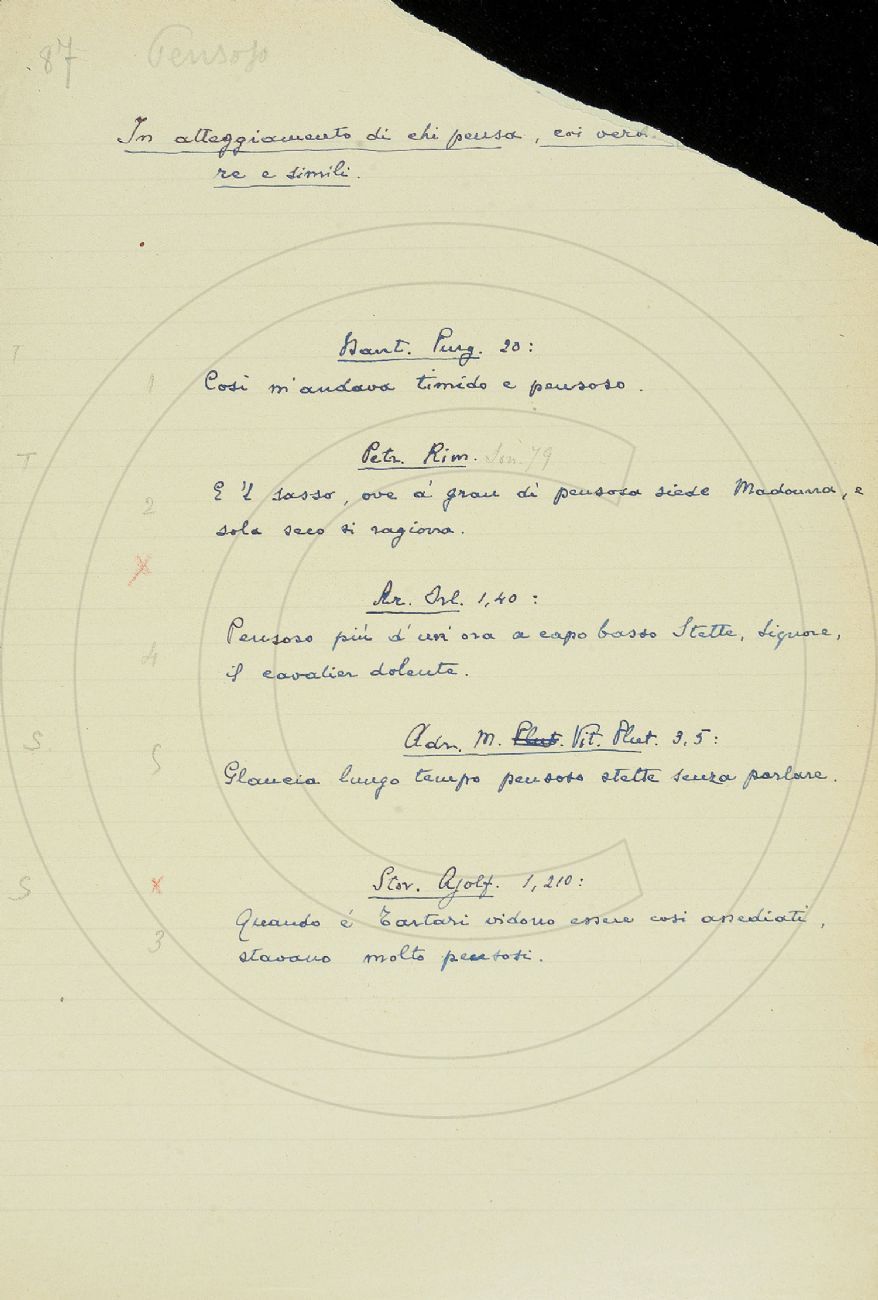 87 Pensoso
In atteggiamento di chi pensa, coi
re e simili.
Dant. Purg. 20:
T
1 Così m'andava timido e pensoso.
Petr. Rim. Son. 79
T
2 E 'l sasso, ove a' gran dì pensosa siede Madonna, e
sola seco si ragiona.
x
Ar. Orl. 1,40:
Pensoso più d'un' ora a capo basso Stette, Signore,
4 il cavalier dolente.
Adr. M. Plut. Vit. Plut. 3,5:
S
5 Glaucia lungo tempo pensoso stette senza parlare.
S x Stor. Ajolf. 1,210:
Quando é Tartari vidono essere così assediati,
3 stavano molto pensosi.